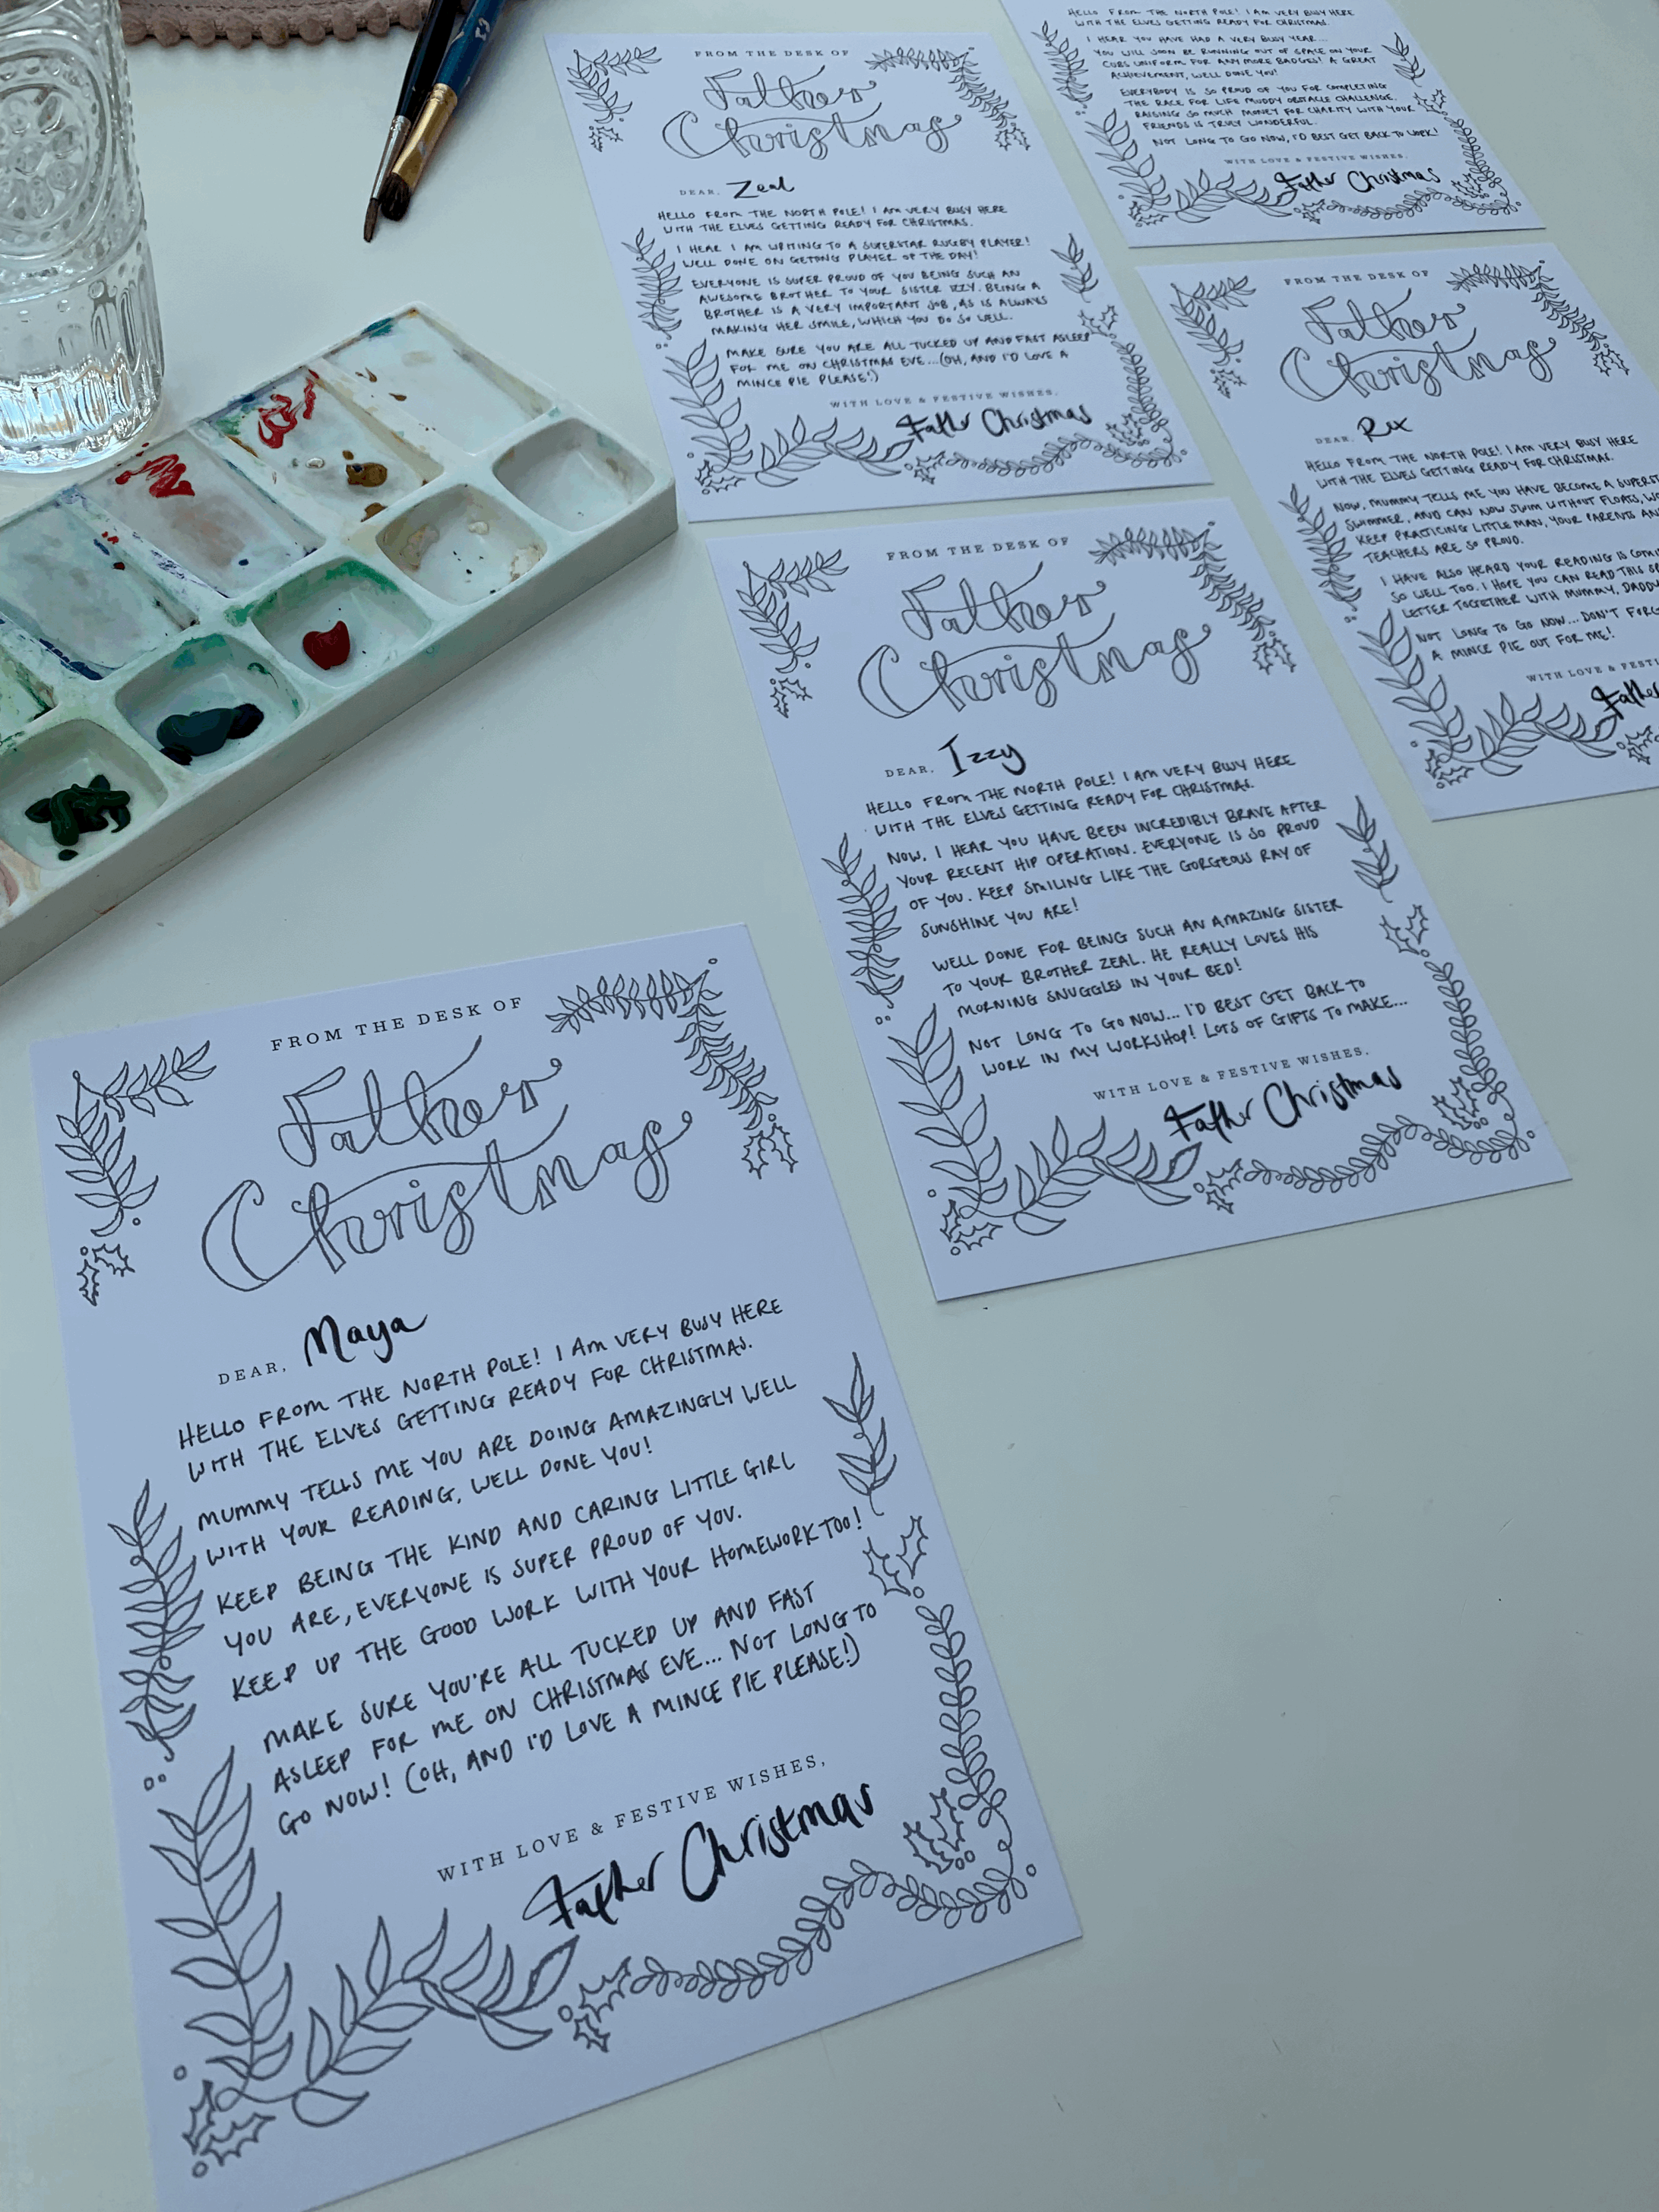 FROM THE DESK OF
Father
Christmas
DEAR, Zeal
HELLO FROM THE NORTH POLE! I AM VERY BUSY HERE
WITH THE ELVES GETTING READY FOR CHRISTMAS.
I HEAR I AM WRITING TO A SUPERSTAR RUGBY PLAYER!
WELL DONE ON GETTING PLAYER OF THE DAY!
EVERYONE IS SUPER PROUD OF YOU BEING SUCH AN
AWESOME BROTHER TO YOUR SISTER IZZY. BEING A
BROTHER IS A VERY IMPORTANT JOB, AS IS ALWAYS
MAKING HER SMILE, WHICH YOU DO SO WELL.
MAKE SURE YOU ARE ALL TUCKED UP AND FAST ASLEEP
FOR ME ON CHRISTMAS EVE...(OH, AND I'D LOVE A
MINCE PIE PLEASE!)
WITH LOVE & FESTIVE WISHES,
Father Christmas
HELLO FROM THE NORTH POLE! I AM VERY BUSY HERE
WITH THE ELVES GETTING READY FOR CHRISTMAS.
I HEAR YOU HAVE HAD A VERY BUSY YEAR...
YOU WILL SOON BE RUNNING OUT OF SPACE ON YOUR
CUBS UNIFORM FOR ANY MORE BADGES! A GREAT
ACHIEVEMENT, WELL DONE YOU!
EVERYBODY IS SO PROUD OF YOU FOR COMPLETING
THE RACE FOR LIFE MUDDY OBSTACLE CHALLENGE.
RAISING SO MUCH MONEY FOR CHARITY WITH YOUR
FRIENDS IS TRULY WONDERFUL.
NOT LONG TO GO NOW, I'D BEST GET BACK TO WORK!
WITH LOVE & FESTIVE WISHES,
Father Christmas
FROM THE DESK OF
Father
Christmas
DEAR, Rex
HELLO FROM THE NORTH POLE! I AM VERY BUSY HERE
WITH THE ELVES GETTING READY FOR CHRISTMAS.
NOW, MUMMY TELLS ME YOU HAVE BECOME A
SWIMMER, AND CAN NOW SWIM WITHOUT FLOATS,
KEEP PRACTICING LITTLE MAN, YOUR PARENTS
TEACHERS ARE SO PROUD.
I HAVE ALSO HEARD YOUR READING IS
SO WELL TOO. I HOPE YOU CAN READ THIS
LETTER TOGETHER WITH MUMMY,
NOT LONG TO GO NOW... DON'T
A MINCE PIE OUT FOR ME!
WITH LOVE &
Father
FROM THE DESK OF
Father
Christmas
DEAR, Izzy
HELLO FROM THE NORTH POLE! I AM VERY BUSY HERE
WITH THE ELVES GETTING READY FOR CHRISTMAS.
NOW, I HEAR YOU HAVE BEEN INCREDIBLY BRAVE AFTER
YOUR RECENT HIP OPERATION. EVERYONE IS SO PROUD
OF YOU. KEEP SMILING LIKE THE GORGEOUS RAY OF
SUNSHINE YOU ARE!
WELL DONE FOR BEING SUCH AN AMAZING SISTER
TO YOUR BROTHER ZEAL. HE REALLY LOVES HIS
MORNING SNUGGLES IN YOUR BED!
NOT LONG TO GO NOW... I'D BEST GET BACK TO
WORK IN MY WORKSHOP! LOTS OF GIFTS TO MAKE...
WITH LOVE & FESTIVE WISHES,
Father Christmas
FROM THE DESK OF
Father
Christmas
DEAR, Maya
HELLO FROM THE NORTH POLE! I AM VERY BUSY HERE
WITH THE ELVES GETTING READY FOR CHRISTMAS.
MUMMY TELLS ME YOU ARE DOING AMAZINGLY WELL
WITH YOUR READING, WELL DONE YOU!
KEEP BEING THE KIND AND CARING LITTLE GIRL
YOU ARE, EVERYONE IS SUPER PROUD OF YOU.
KEEP UP THE GOOD WORK WITH YOUR HOMEWORK TOO!
MAKE SURE YOU'RE ALL TUCKED UP AND FAST
ASLEEP FOR ME ON CHRISTMAS EVE... NOT LONG TO
GO NOW! (OH, AND I'D LOVE A MINCE PIE PLEASE!)
WITH LOVE & FESTIVE WISHES,
Father Christmas